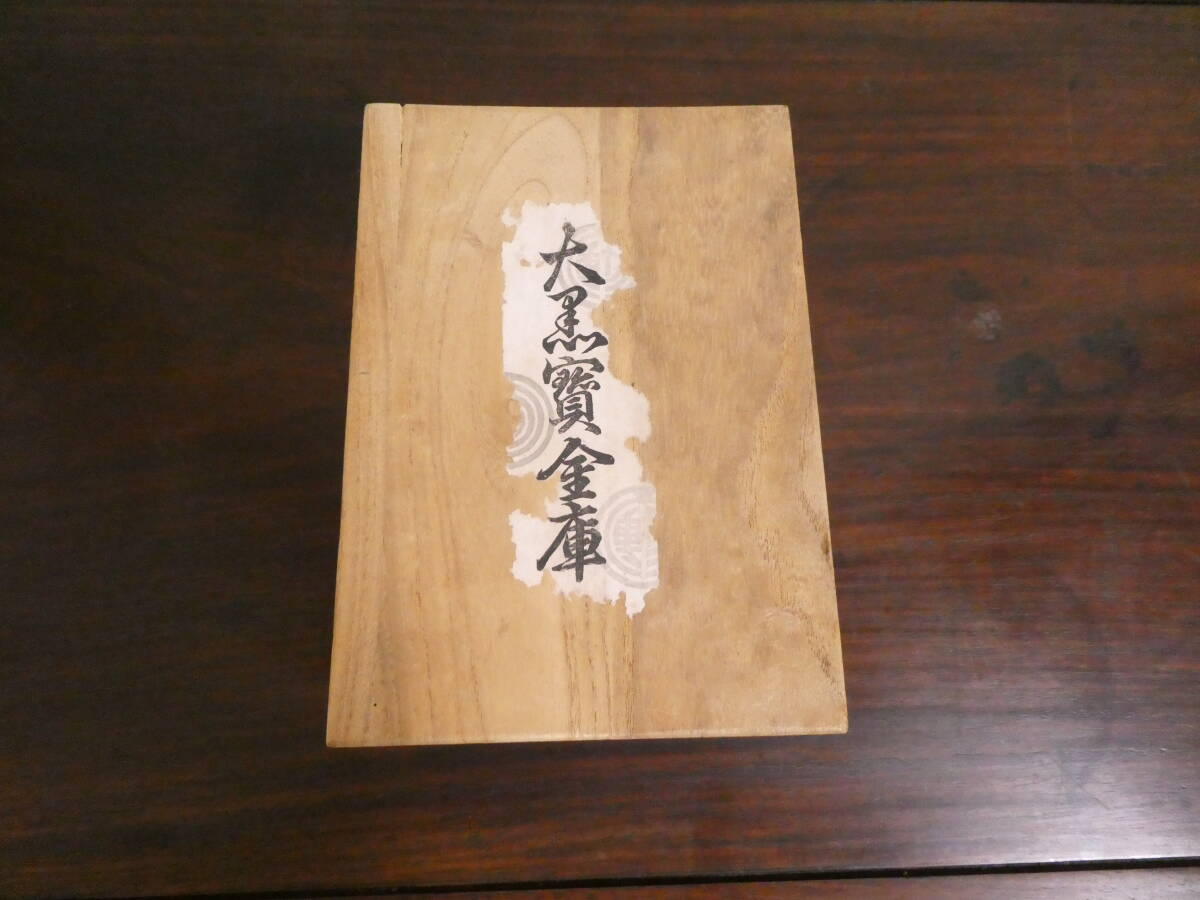 大黒寶金庫